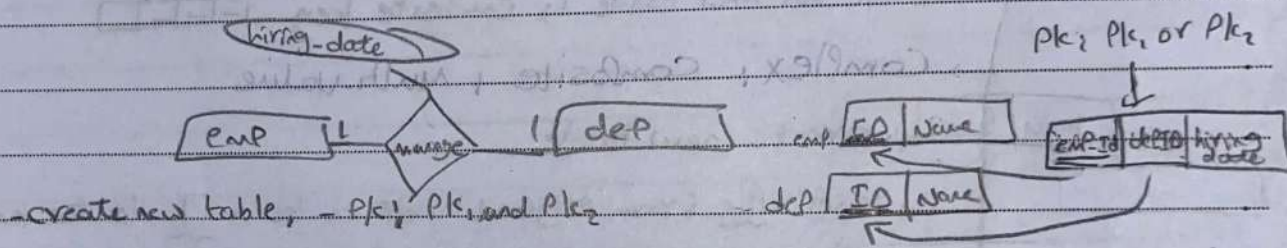 hiring-date
Pk: Pk1 or Pk2
emp 1 manage 1 dep
emp ID Name
emp-Id depID hiring date
- create new table, - Pk: Pk1 and Pk2
dep ID Name